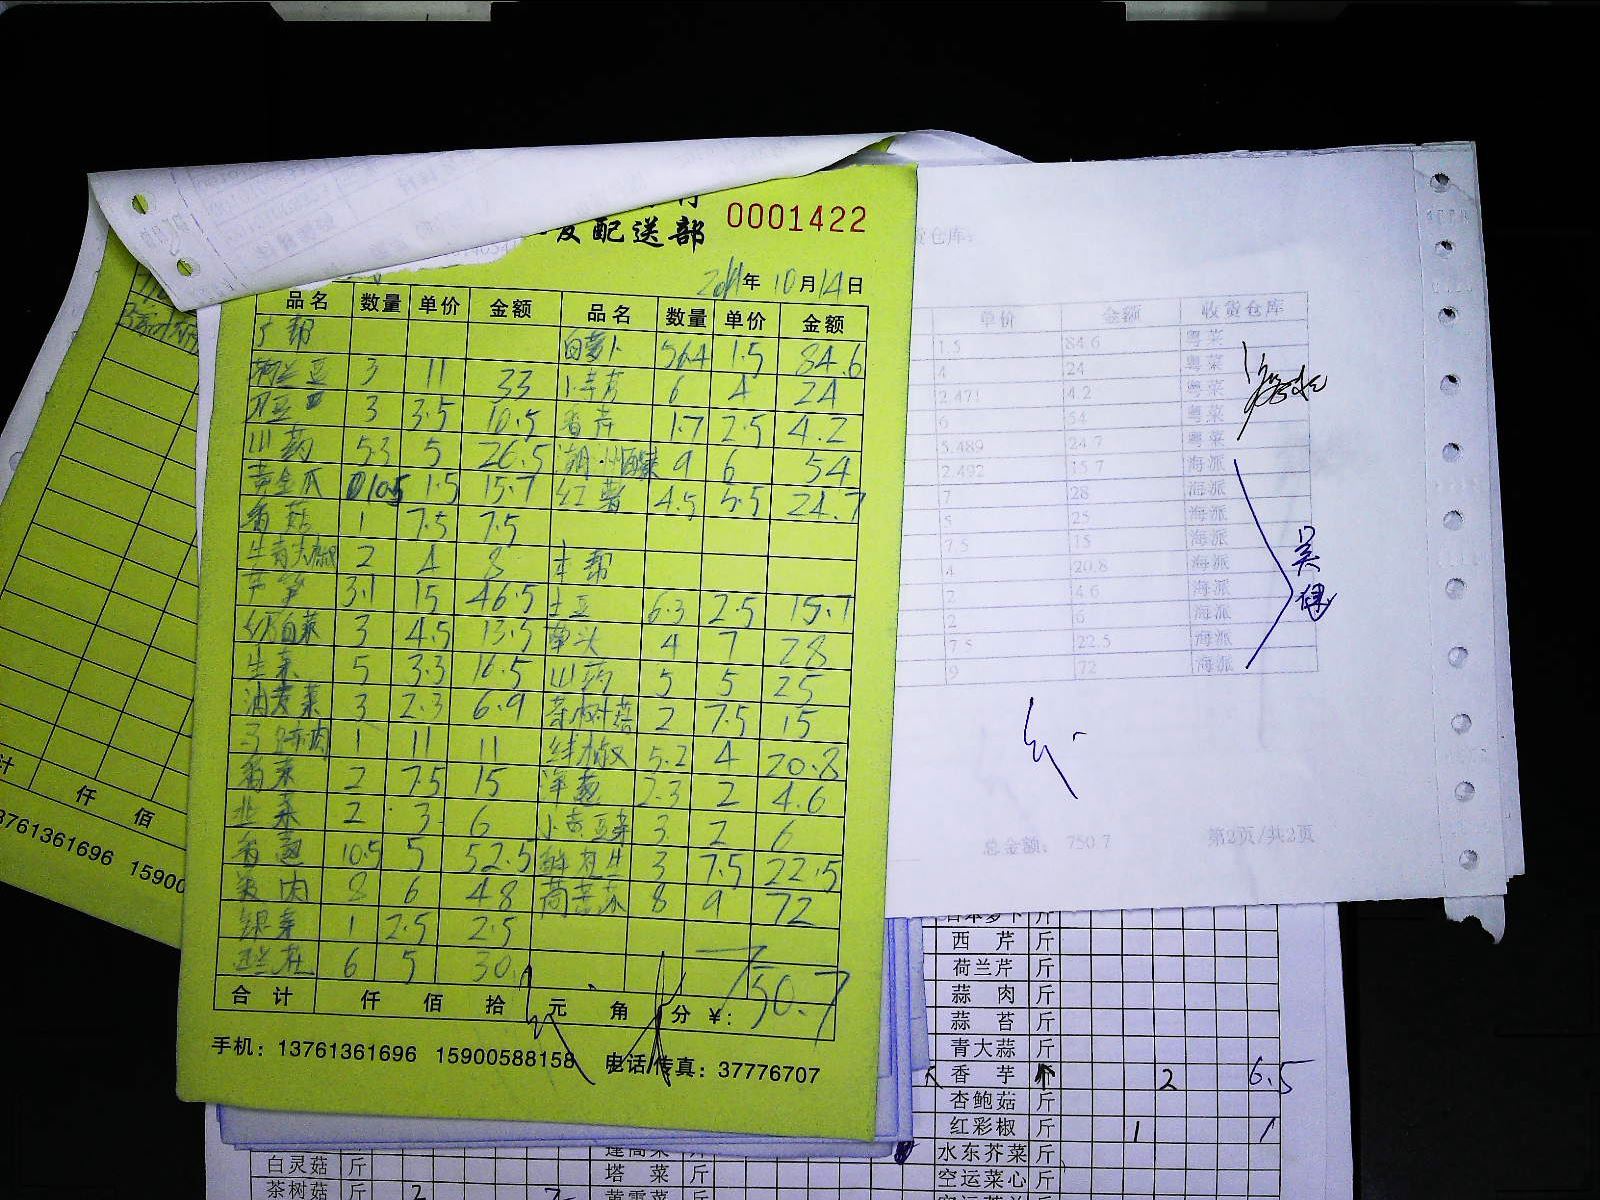 配送部 0001422
年 10月14日
品名 数量 单价 金额 品名 数量 单价 金额
广帮 白萝卜 56.4 1.5 84.6
荷兰豆 3 11 33 6 4 24
刀豆 3 3.5 10.5 香芹 1.7 2.5 4.2
山药 5.3 5 26.5 9 6 54
黄金瓜 10.5 1.5 15.7 红薯 4.5 5.5 24.7
香菇 1 7.5 7.5
生青大椒 2 4 8 本帮
芦笋 3.1 15 46.5 土豆 6.3 2.5 15.7
白菜 3 4.5 13.5 草头 4 7 28
生菜 5 3.3 16.5 山药 5 5 25
油麦菜 3 2.3 6.9 茶树菇 2 7.5 15
1 11 11 尖椒 5.2 4 20.8
香菜 2 7.5 15 洋葱 2.3 2 4.6
韭菜 2 3 6 小黄豆芽 3 2 6
香葱 10.5 5 52.5 鲜花生 3 7.5 22.5
8 6 48 8 9 72
银芽 1 2.5 2.5
西兰花 6 5 30
合计 仟 佰 拾 元 角 分 ¥: 750.7
手机：13761361696 15900588158 电话/传真：37776707
计 仟 佰
3761361696 15900
货仓库:
单价 金额 收货仓库
1.5 84.6 粤菜
4 24 粤菜
2.471 4.2 粤菜
6 54 粤菜
5.489 24.7 粤菜
2.492 15.7 海派
7 28 海派
5 25 海派
7.5 15 海派
4 20.8 海派
2 4.6 海派
2 6 海派
7.5 22.5 海派
9 72 海派
吴健
总金额: 750.7 第2页/共2页
日本萝卜 斤
西芹 斤
荷兰芹 斤
蒜肉 斤
蒜苔 斤
青大蒜 斤
香芋 2 6.5
杏鲍菇 斤
红彩椒 斤 1
水东芥菜 斤
空运菜心 斤
白灵菇 斤
茶树菇 斤 2
蓬蒿菜 斤
塔菜 斤
黄雪菜 斤